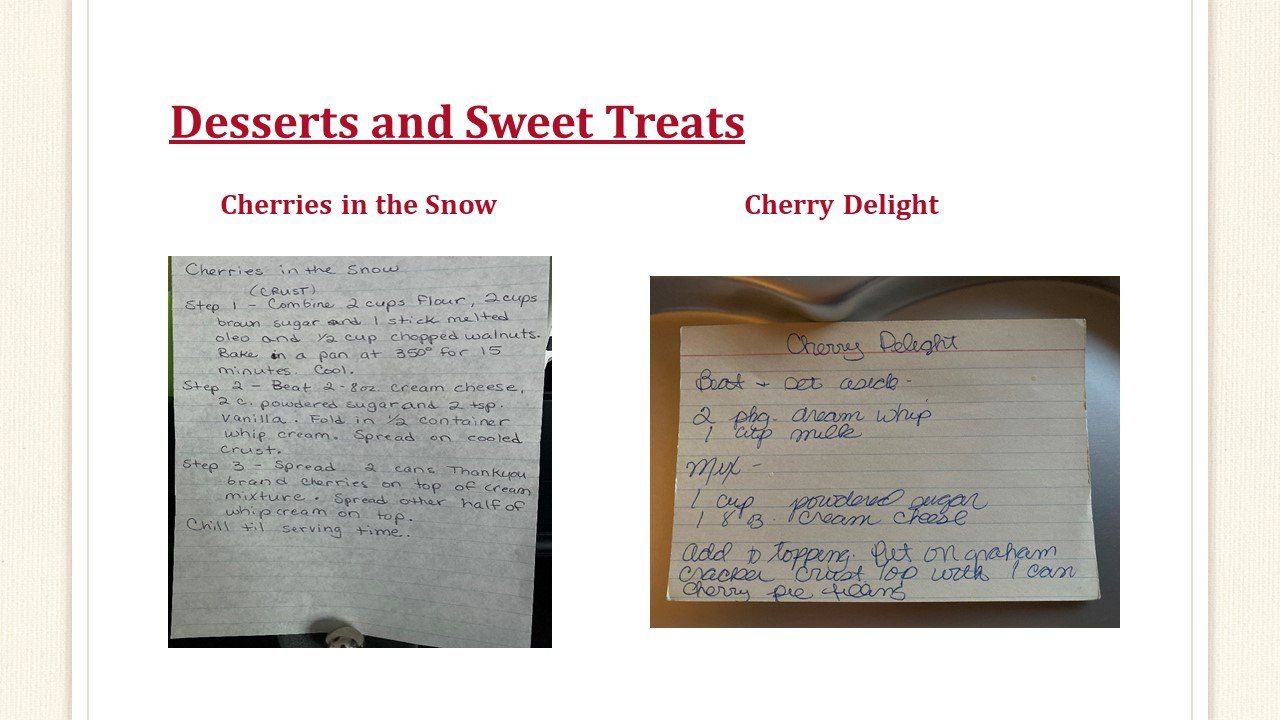 Desserts and Sweet Treats
Cherries in the Snow
Cherries in the Snow
(CRUST)
Step 1 - Combine 2 cups flour, 2 cups
brown sugar and 1 stick melted
oleo and 1/2 cup chopped walnuts.
Bake in a pan at 350° for 15
minutes. Cool.
Step 2 - Beat 2-8oz. cream cheese,
2 c. powdered sugar and 2 tsp.
vanilla. Fold in 1/2 container
whip cream. Spread on cooled
crust.
Step 3 - Spread 2 cans Thankyou
brand cherries on top of cream
mixture. Spread other half of
whipcream on top.
Chill til serving time.
Cherry Delight
Cherry Delight
Beat + set aside -
2 pkg. dream whip
1 cup milk
Mix -
1 cup powdered sugar
1 8 oz. cream cheese
add to topping. Put on graham
cracker crust Top with 1 can
cherry pie filling